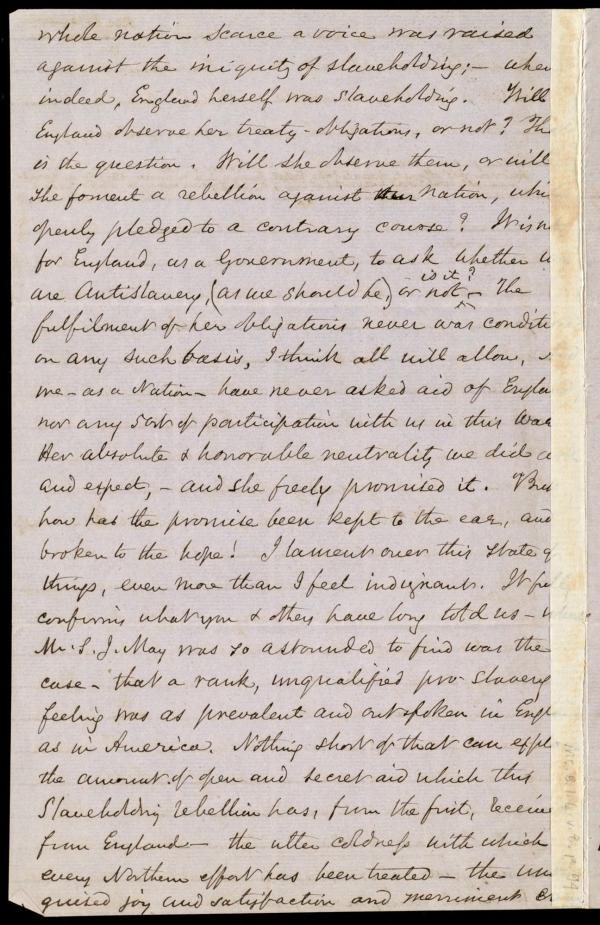 whole nation scarce a voice was raised
against the iniquity of slaveholding; – when
indeed, England herself was slaveholding. Will
England observe her treaty-obligations, or not? Th
is the question. Will she observe them, or will
she foment a rebellion against Nation, whi
openly pledged to a contrary course? It is n
for England, as a Government, to ask whether w
is it?
are Antislavery, (as we should be) or not, – The
fulfilment of her obligations never was conditi
on any such basis, I think all will allow,
we – as a Nation – have never asked aid of Engla
nor any sort of participation with us in this War
Her absolute & honorable neutrality we did a
and expect, – and she freely promised it. But
how has the promise been kept to the ear, and
broken to the hope! I lament over this state o
things, even more than I feel indignant. It fu
confirms what you & others have long told us –
Mr. S. J. May was so astounded to find was the
case – that a rank, unqualified pro-slavery
feeling was as prevalent and outspoken in Engl
as in America. Nothing short of that can expl
the amount of open and secret aid which this
Slaveholding rebellion has, from the first, receive
from England – the utter coldness with which
every Northern effort has been treated – the un
guised joy and satisfaction and merriment